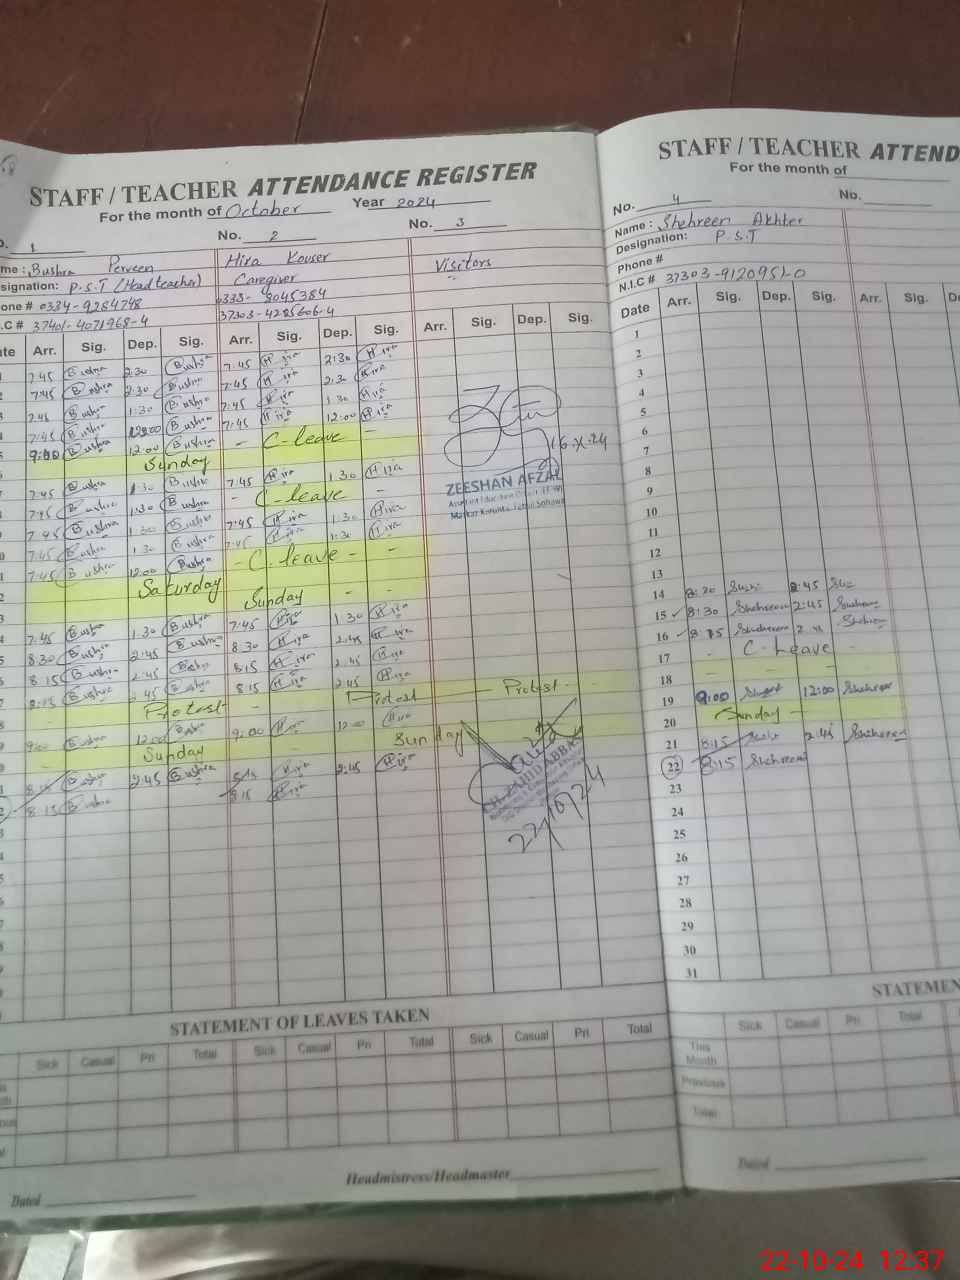 STAFF / TEACHER ATTENDANCE REGISTER
For the month of October Year 2024
1 No. 2 No. 3
Bushra Perveen Hira Kouser Visitors
P.S.T (Head teacher) Caregiver
0334-9284748 0333-8045384
37401-4071968-4 37303-4285606-4
Arr. Sig. Dep. Sig. Arr. Sig. Dep. Sig. Arr. Sig. Dep. Sig.
7:45 Bushra 2:30 Bushra 7:45 Hira 2:30 Hira
7:45 Bushra 2:30 Bushra 7:45 Hira 2:30 Hira
7:45 Bushra 1:30 Bushra 7:45 Hira 1:30 Hira
7:45 Bushra 12:00 Bushra 7:45 Hira 12:00 Hira
9:00 Bushra 12:00 Bushra - C-leave -
Sunday
7:45 Bushra 1:30 Bushra 7:45 Hira 1:30 Hira
7:45 Bushra 1:30 Bushra - C-leave -
7:45 Bushra 1:30 Bushra 7:45 Hira 1:30 Hira
7:45 Bushra 1:30 Bushra 7:45 Hira 1:30 Hira
7:45 Bushra 12:00 Bushra - C.leave - -
Saturday - -
Sunday
7:45 Bushra 1:30 Bushra 7:45 Hira 1:30 Hira
8:30 Bushra 2:45 Bushra 8:30 Hira 2:45 Hira
8:15 Bushra 2:45 Bushra 8:15 Hira 2:45 Hira
8:15 Bushra 2:45 Bushra 8:15 Hira 2:45 Hira
- Protest - Protest - Protest -
9:00 Bushra 12:00 Bushra 9:00 Hira 12:00 Hira
Sunday Sunday
8:15 Bushra 2:45 Bushra 8:15 Hira 2:45 Hira
8:15 Bushra 8:15 Hira
16-X-24
ZEESHAN AFZAL
ZAHID ABBAS
22/10/24
STATEMENT OF LEAVES TAKEN
Sick Casual Pri Total Sick Casual Pri Total Sick Casual Pri Total
Headmistress/Headmaster
Dated
STAFF / TEACHER ATTEND
For the month of
No. 4 No.
Name: Shehreen Akhter
Designation: P.S.T
Phone #
N.I.C # 37303-9120951-0
Date Arr. Sig. Dep. Sig. Arr. Sig.
1
2
3
4
5
6
7
8
9
10
11
12
13
14 8:30 2:45
15 8:30 Shehreen 2:45 Shehreen
16 8:15 Shehreen Shehreen
17 - C-Leave -
18 - - -
19 9:00 12:00 Shehreen
20 Sunday -
21 8:15 2:45 Shehreen
22 8:15 Shehreen
23
24
25
26
27
28
29
30
31
STATEMEN
Sick Casual Pri Total
This Month
Previous
Total
Dated
22-10-24 12:37